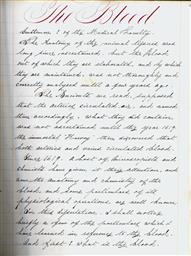 The Blood
of the Medical Faculty.
The Anatomy of the animal
long since ascertained. but the blood
out of which they are elaborated, and by which
they are maintained, was not thoroughly and
correctly analyzed until a few years ago.
The Ancients we read, supposed
that the arteries circulated air, and named
them accordingly. What they did contain,
was not ascertained until the year 1619
the immortal Harvey then discovered that
both arteries and veins circulated blood.
Since 1619. a host of
chemists have given it their attention, and
now the anatomy and chemistry of the
blood, and some particulars of its
physiological operations are well known.
In this dissertation, I shall notice
briefly a few of the particulars which I
have learned in reference to the blood.
And first: What is the blood.